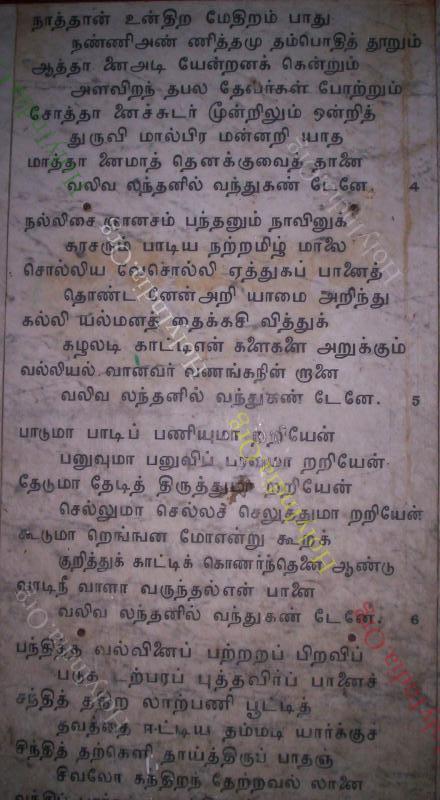 நாத்தான் உன்திற மேதிறம் பாது
நண்ணிஅண் ணித்தமு தம்பொதித் தூறும்
ஆத்தா னைஅடி யேன்றனக் கென்றும்
அளவிறந் தபல தேவர்கள் போற்றும்
சோத்தா னைச்சுடர் மூன்றிலும் ஒன்றித்
துருவி மால்பிர மன்னறி யாத
மாத்தா னைமாத் தெனக்குவைத் தானை
வலிவ லந்தனில் வந்துகண் டேனே. 4
நல்லிசை ஞானசம் பந்தனும் நாவினுக்
கரசரும் பாடிய நற்றமிழ் மாலை
சொல்லிய வேசொல்லி ஏத்துகப் பானைத்
தொண்ட னேன்அறி யாமை அறிந்து
கல்லி யல்மனத் தைக்கசி வித்துக்
கழலடி காட்டிஎன் களைகளை அறுக்கும்
வல்லியல் வானவர் வணங்கநின் றானை
வலிவ லந்தனில் வந்துகண் டேனே. 5
பாடுமா பாடிப் பணியுமா றறியேன்
பனுவுமா பனுவிப் பரவுமா றறியேன்
தேடுமா தேடித் திருத்துமா றறியேன்
செல்லுமா செல்லச் செலுத்துமா றறியேன்
கூடுமா றெங்ஙன மோஎன்று கூறக்
குறித்துக் காட்டிக் கொணர்ந்தெனை ஆண்டு
வாடிநீ வாளா வருந்தல்என் பானை
வலிவ லந்தனில் வந்துகண் டேனே. 6
பந்தித்த வல்வினைப் பற்றறப் பிறவிப்
படுக டற்பரப் புத்தவிர்ப் பானைச்
சந்தித் ததிற லாற்பணி பூட்டித்
தவத்தை ஈட்டிய தம்மடி யார்க்குச்
சிந்தித் தற்கெளி தாய்த்திருப் பாதஞ்
சிவலோ கந்திறந் தேற்றவல் லானை
HolyIndia.Org
HolyIndia.Org
HolyIndia.Org
HolyIndia.Org
HolyIndia.Org